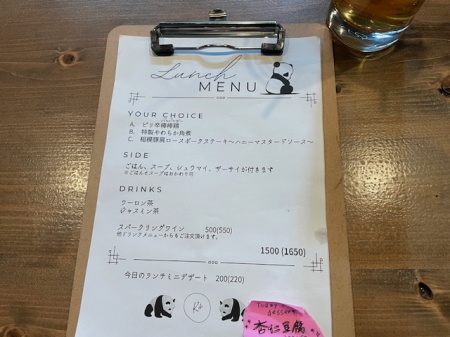 Lunch
MENU
YOUR CHOICE
A. ピリ辛棒棒鶏
B. 特製やわらか角煮
C. 相模豚肩ロースポークステーキ〜ハニーマスタードソース〜
SIDE
ごはん、スープ、シュウマイ、ザーサイが付きます
※ごはんとスープはおかわり可
DRINKS
ウーロン茶
ジャスミン茶
スパークリングワイン 500(550)
他ドリンクメニューからもご注文頂けます。
1500 (1650)
今日のランチミニデザート 200(220)
杏仁豆腐